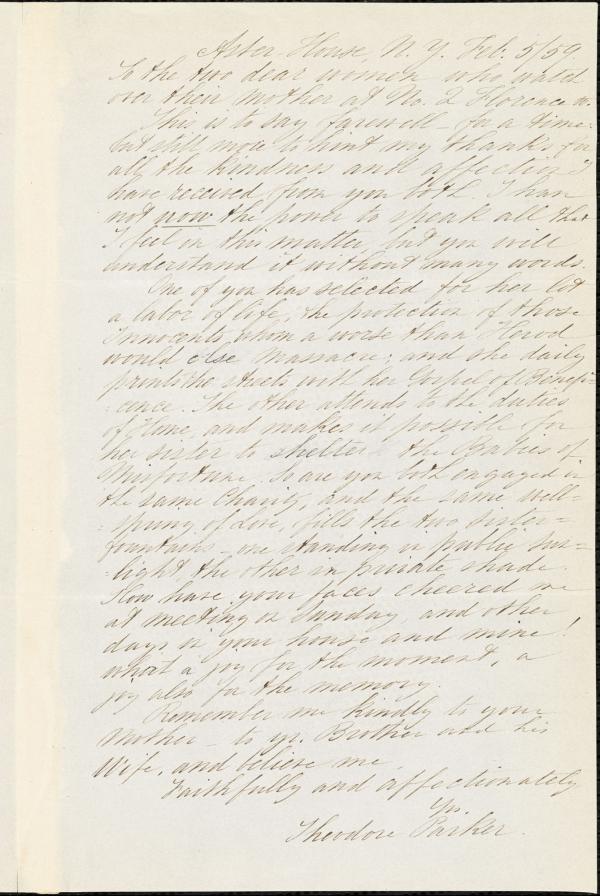 Astor House, N. Y. Feb. 5/59
To the two dear women who watch
over their mother at No. 2 Florence
This is to say farewell – for a time:
but still more to hint my thanks for
all the kindness and affection I
have received from you both. I have
not now the power to speak all that
I feel in this matter, but you will
understand it without many words.
One of you has selected for her lot
a labor of life, the protection of those
Innocents whom a worse than Herod
would else massacre; and she daily
prints the streets with her Gospel of Benefi=
=cence. The other attends to the duties
of Home, and makes it possible for
her sister to shelter the Babies of
Misfortune. So are you both engaged in
the same Charity, and the same well=
=spring of Love, fills the two sister=
fountains – one standing in public sun=
=light, the other in private shade.
How have your faces cheered me
at meeting on Sunday, and other
days in your house and mine!
what a joy for the moment, a
joy also for the memory.
Remember me kindly to your
Mother – to yr. Brother and his
Wife, and believe me
Faithfully and affectionately
Yrs.
Theodore Parker.